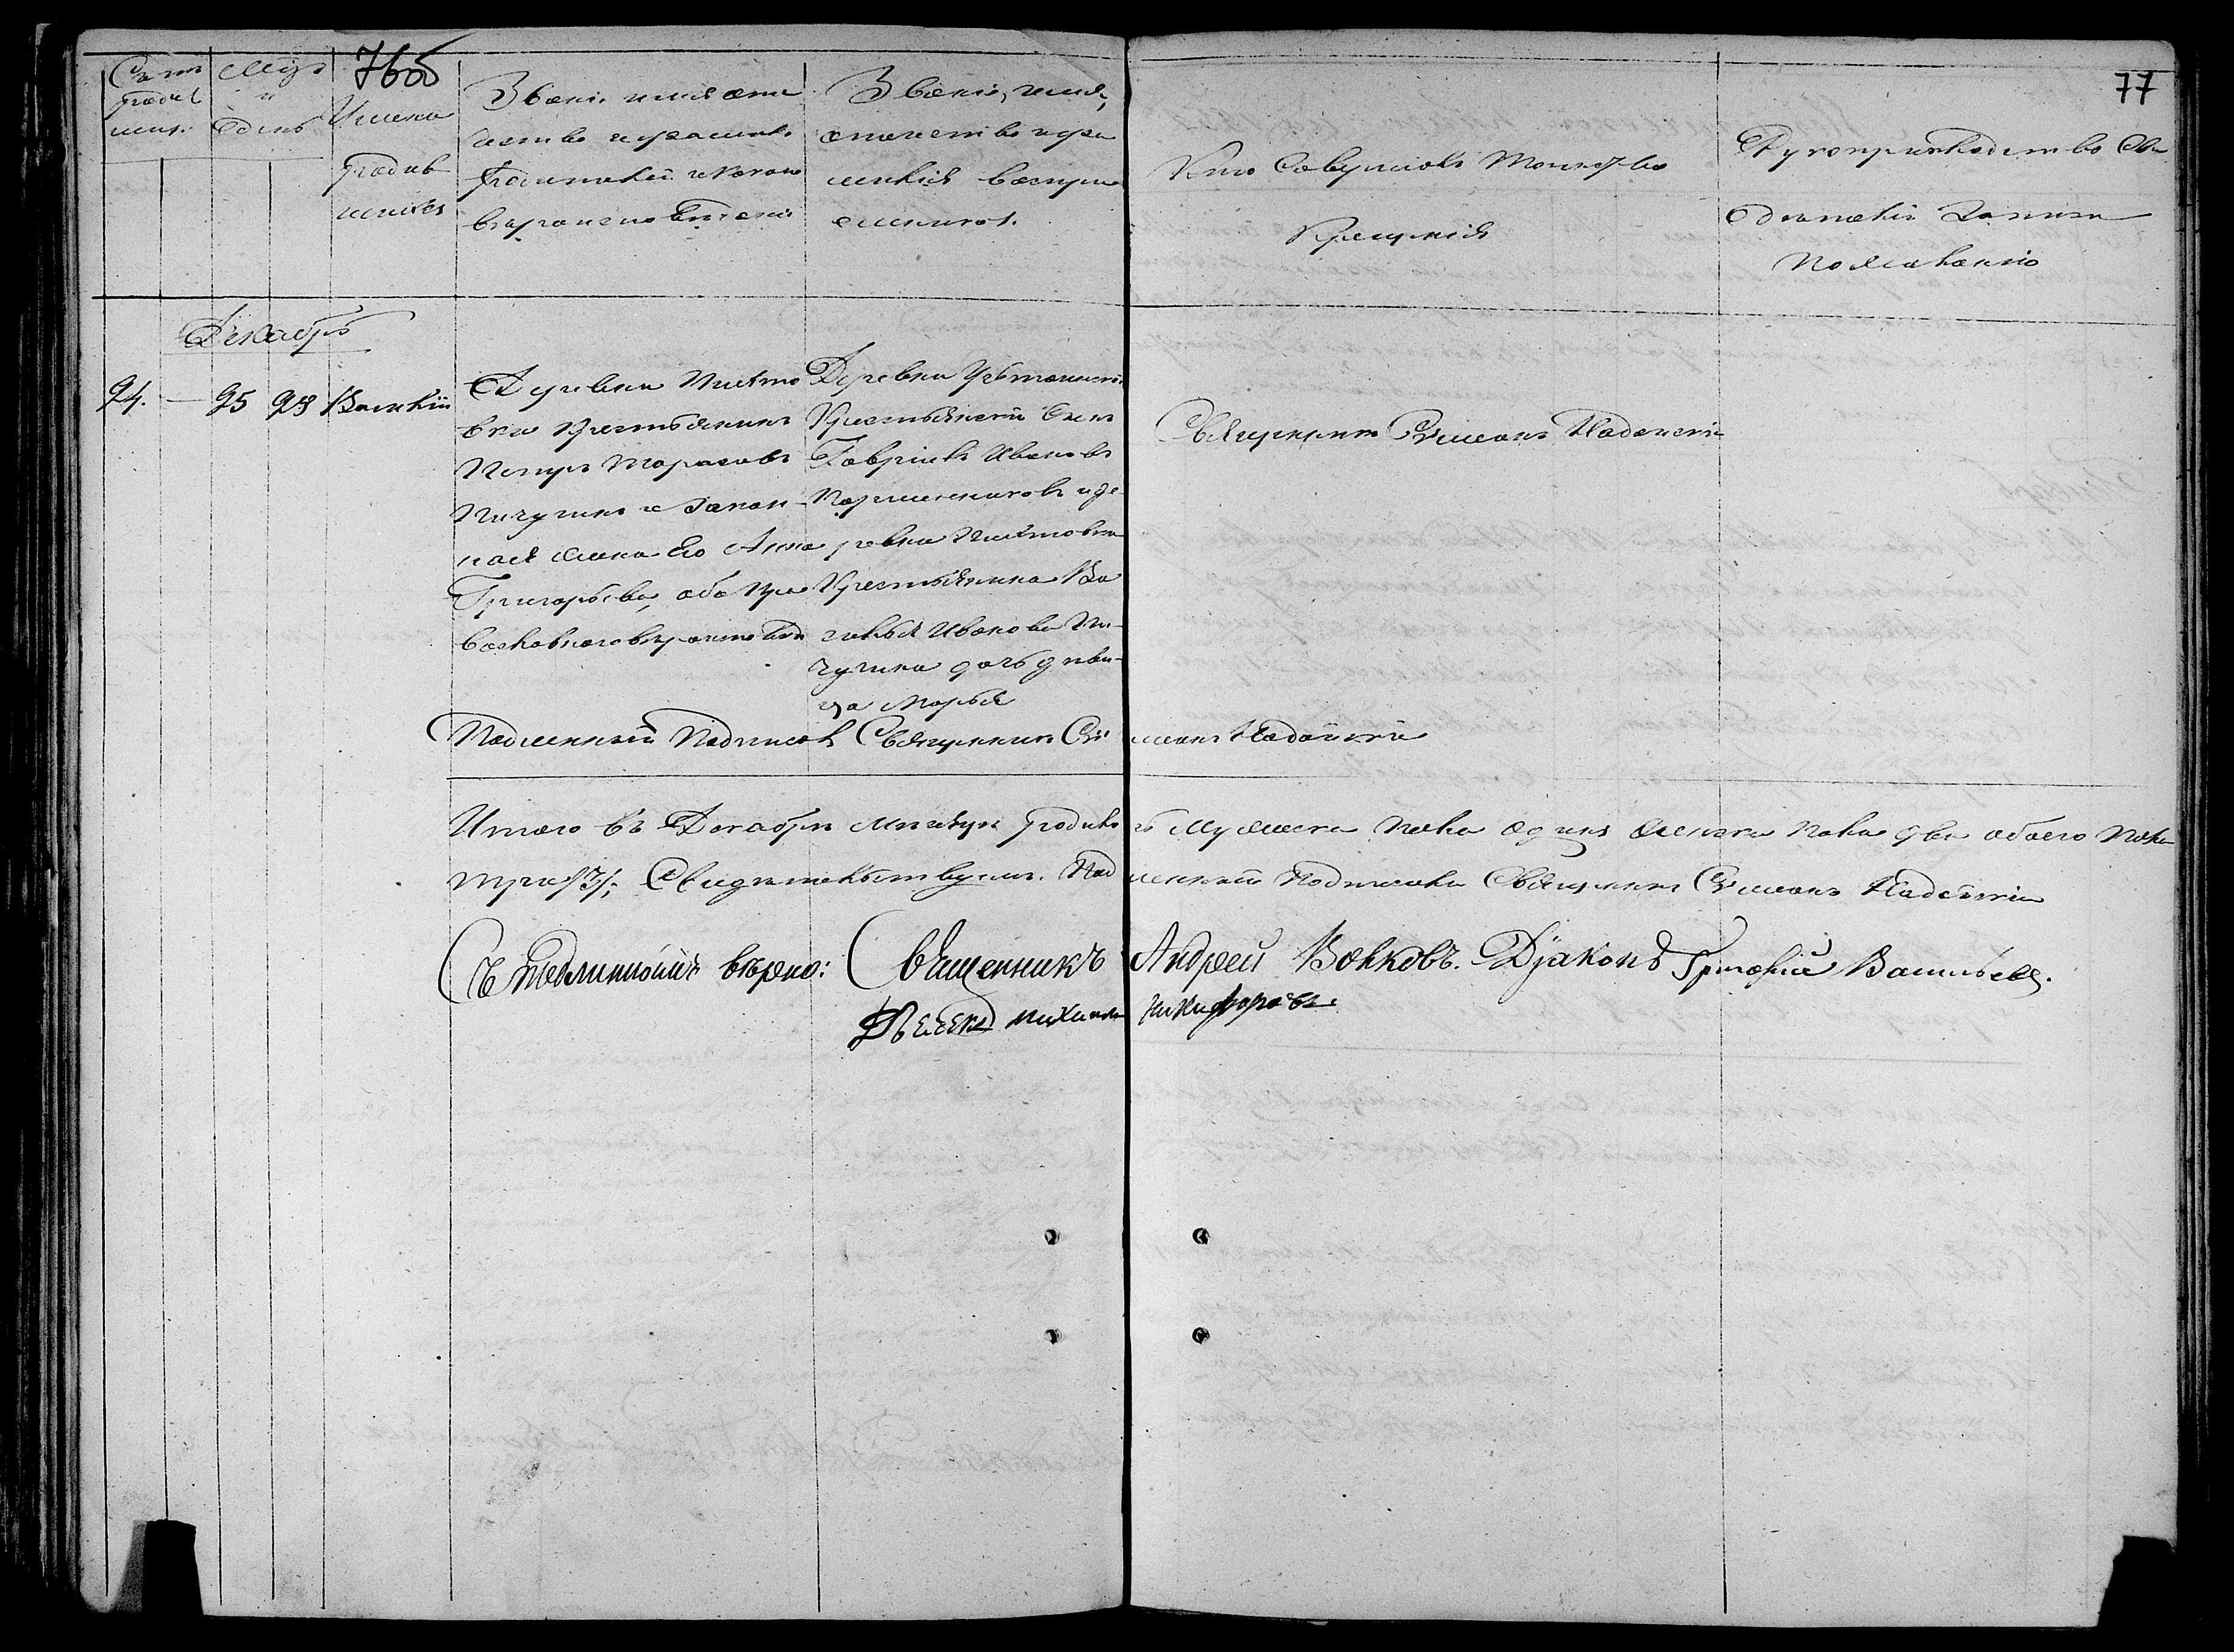 76об
77
Счетъ родив шихъ.
Мѣс. и день
Имена родив шихся
Званіе имя отче
ство и фамилія
Родителей и какого
вѣроисповѣданія
Званіе, имя,
отечество и фа
милія воспріе
емниковъ.
Кто Совершалъ Таинство
Крещенія
Рукоприкладство Сви
дѣтелей Записи
по желанію
Декабрь
24. — 25 28 Василій
Деревни
вки Крестьянинъ
Петръ Тарасовъ
Пичугинъ и закон-
ная жена Его Анна
Григорьева, оба Пра
вославнаго вѣроисповѣд
Деревни
Крестьянскій Сынъ
Гавріилъ Ивановъ
и де
ревни
Крестьянина Ва
силья Иванова Пи-
чугина дочь дѣви-
ца Марья
Священникъ Симеонъ
Подлинный Подписалъ Священникъ Симеонъ
Итого въ Декабрѣ Мѣсяцѣ родилось Мужеска пола одинъ женска пола две обоего пола
три /3/; Свидѣтельствуемъ. Подлинный Подписали Священникъ Симеонъ
Съ Подлиннымъ вѣрно: Священникъ Андрей Волковъ. Діаконъ Григорій Васильевъ.
Михаилъ Никифоровъ.